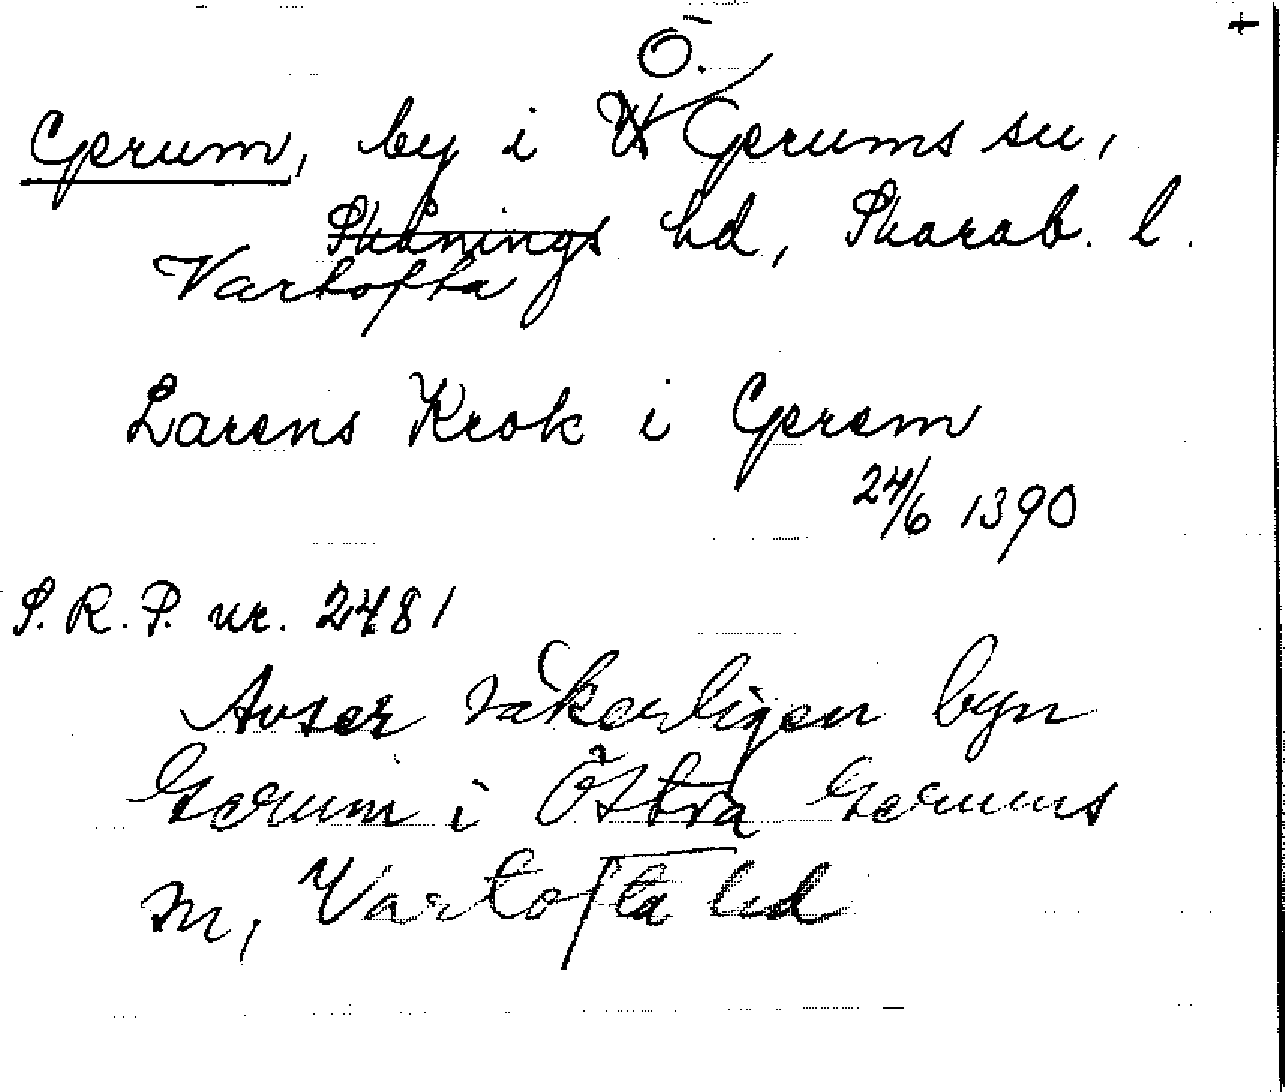 +
Ö.
Gerum, by i V Gerums sn,
Skånings hd, Skarab. l.
Vartofta
Larens Krok i Gerem
24/6 1390
S. R. P. nr. 2481
Avser säkerligen byn
Gerum i Östra Gerums
sn, Vartofta hd